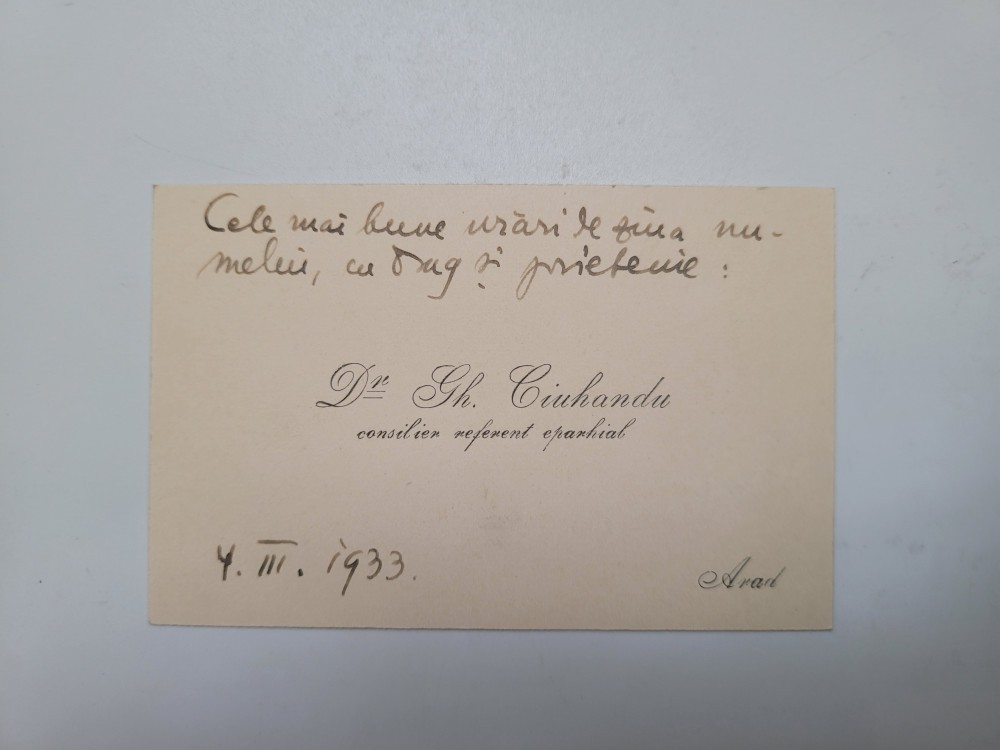 Cele mai bune urări de ziua nu-
melui, cu drag și prietenie :
Dr Gh. Ciuhandu
consilier referent eparhial
4. III. 1933.
Arad